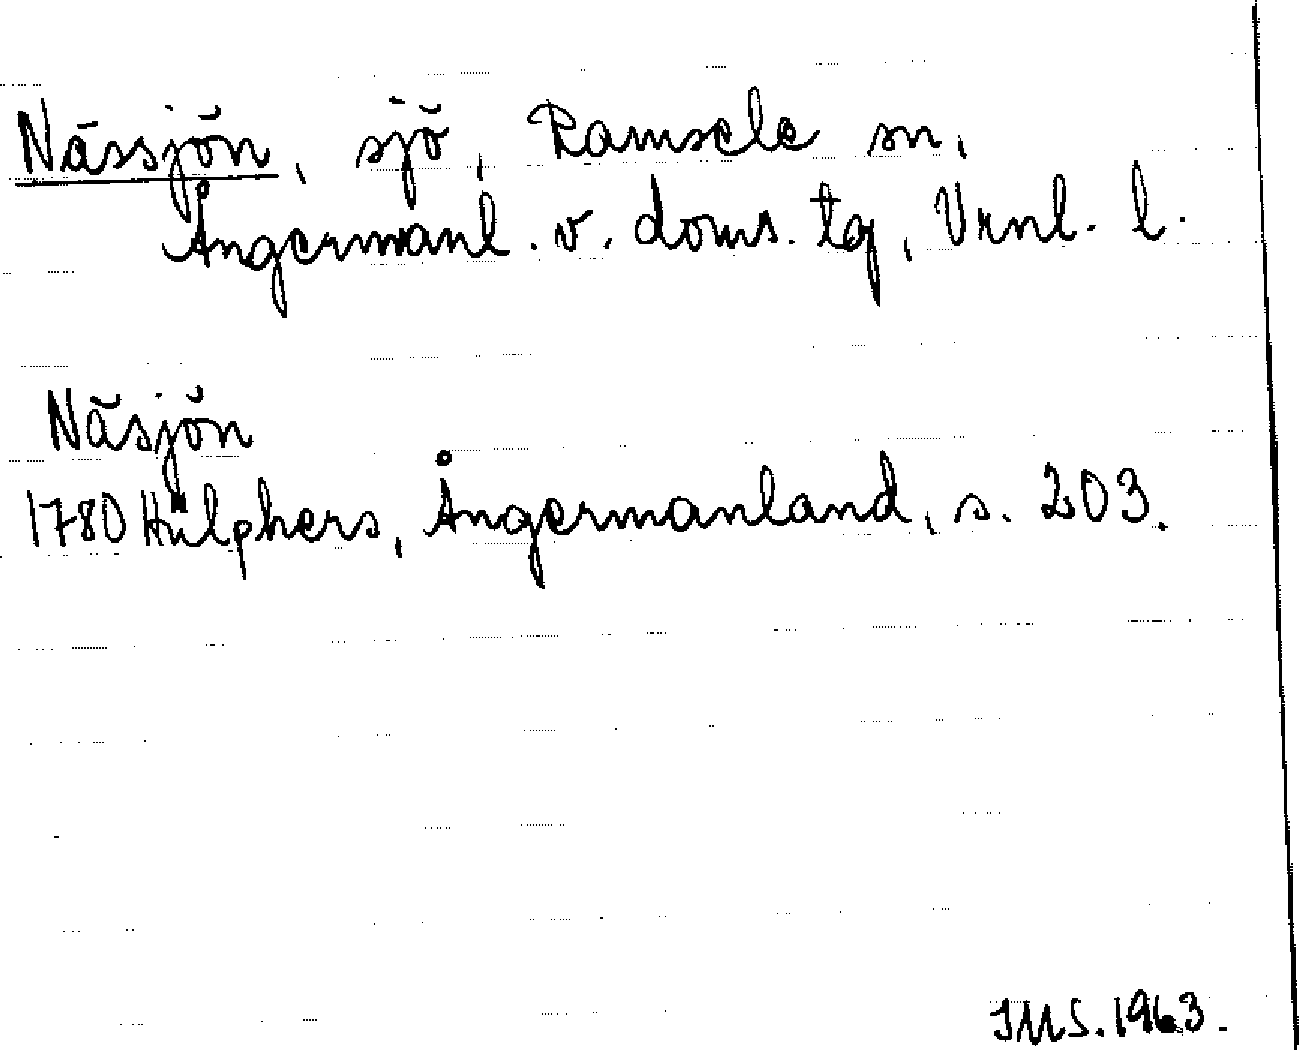 Nässjön, sjö, Ramsele sn,
Ångermanl. v. doms. tg, Vrnl. l.
Näsjön
1780 Hülphers, Ångermanland, s. 203.
IMS. 1963.